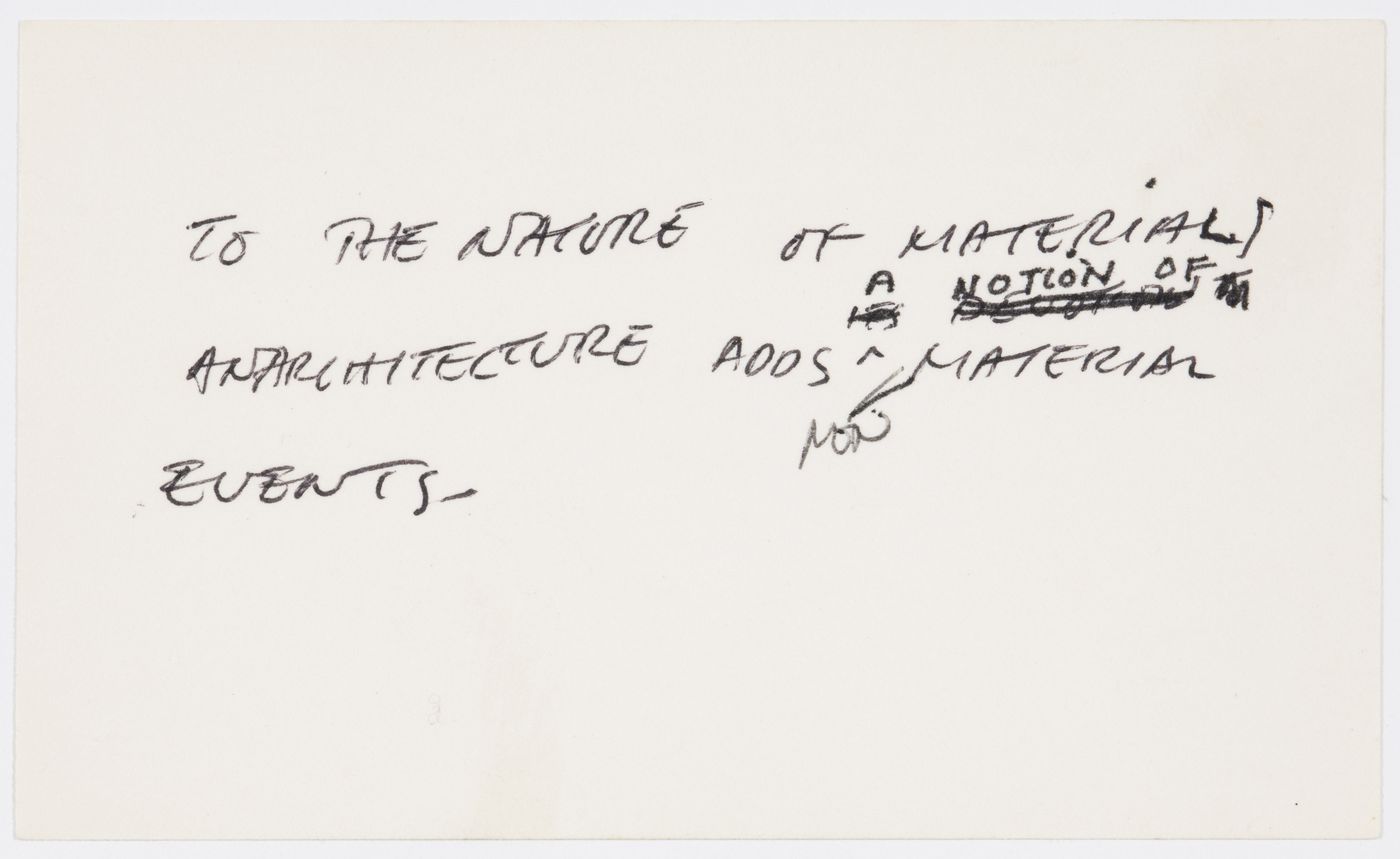 TO THE NATURE OF MATERIALS
A NOTION OF
ANARCHITECTURE ADDS ^ MATERIAL
NON
EVENTS-